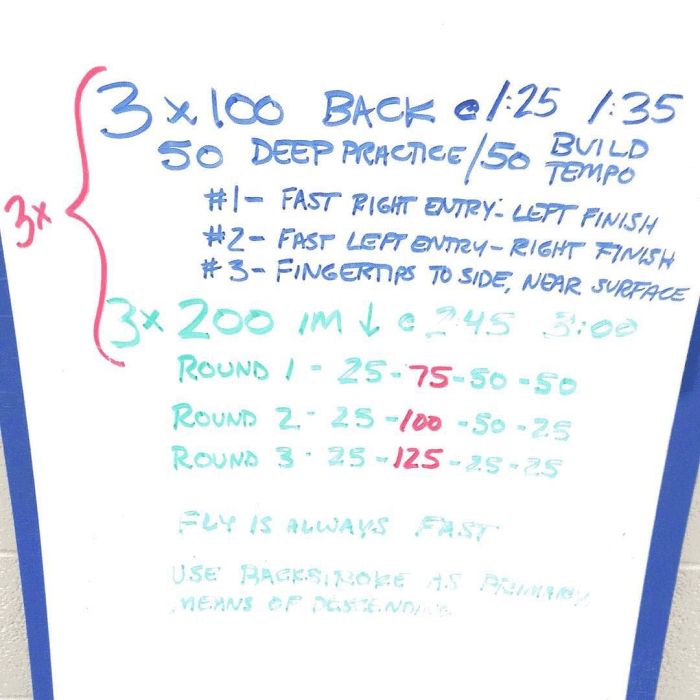 3 x 100 BACK @ 1:25 1:35
50 DEEP PRACTICE / 50 BUILD TEMPO
#1 - FAST RIGHT ENTRY - LEFT FINISH
#2 - FAST LEFT ENTRY - RIGHT FINISH
#3 - FINGERTIPS TO SIDE, NEAR SURFACE
3x
3x 200 IM ↓ @ 2:45 3:00
ROUND 1 - 25 - 75 - 50 - 50
ROUND 2 - 25 - 100 - 50 - 25
ROUND 3 - 25 - 125 - 25 - 25
FLY IS ALWAYS FAST
USE BACKSTROKE AS PRIMARY
MEANS OF DESCENDING